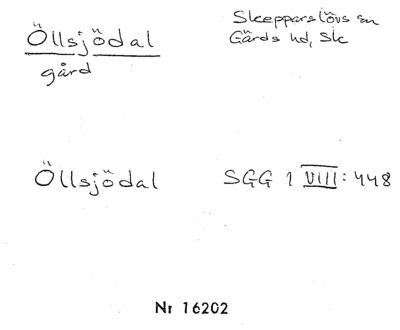 Öllsjödal
Skepparslövs sn
gård
Gärds hd, Sk
Öllsjödal
SGG 1 VIII: 448
Nr 16202